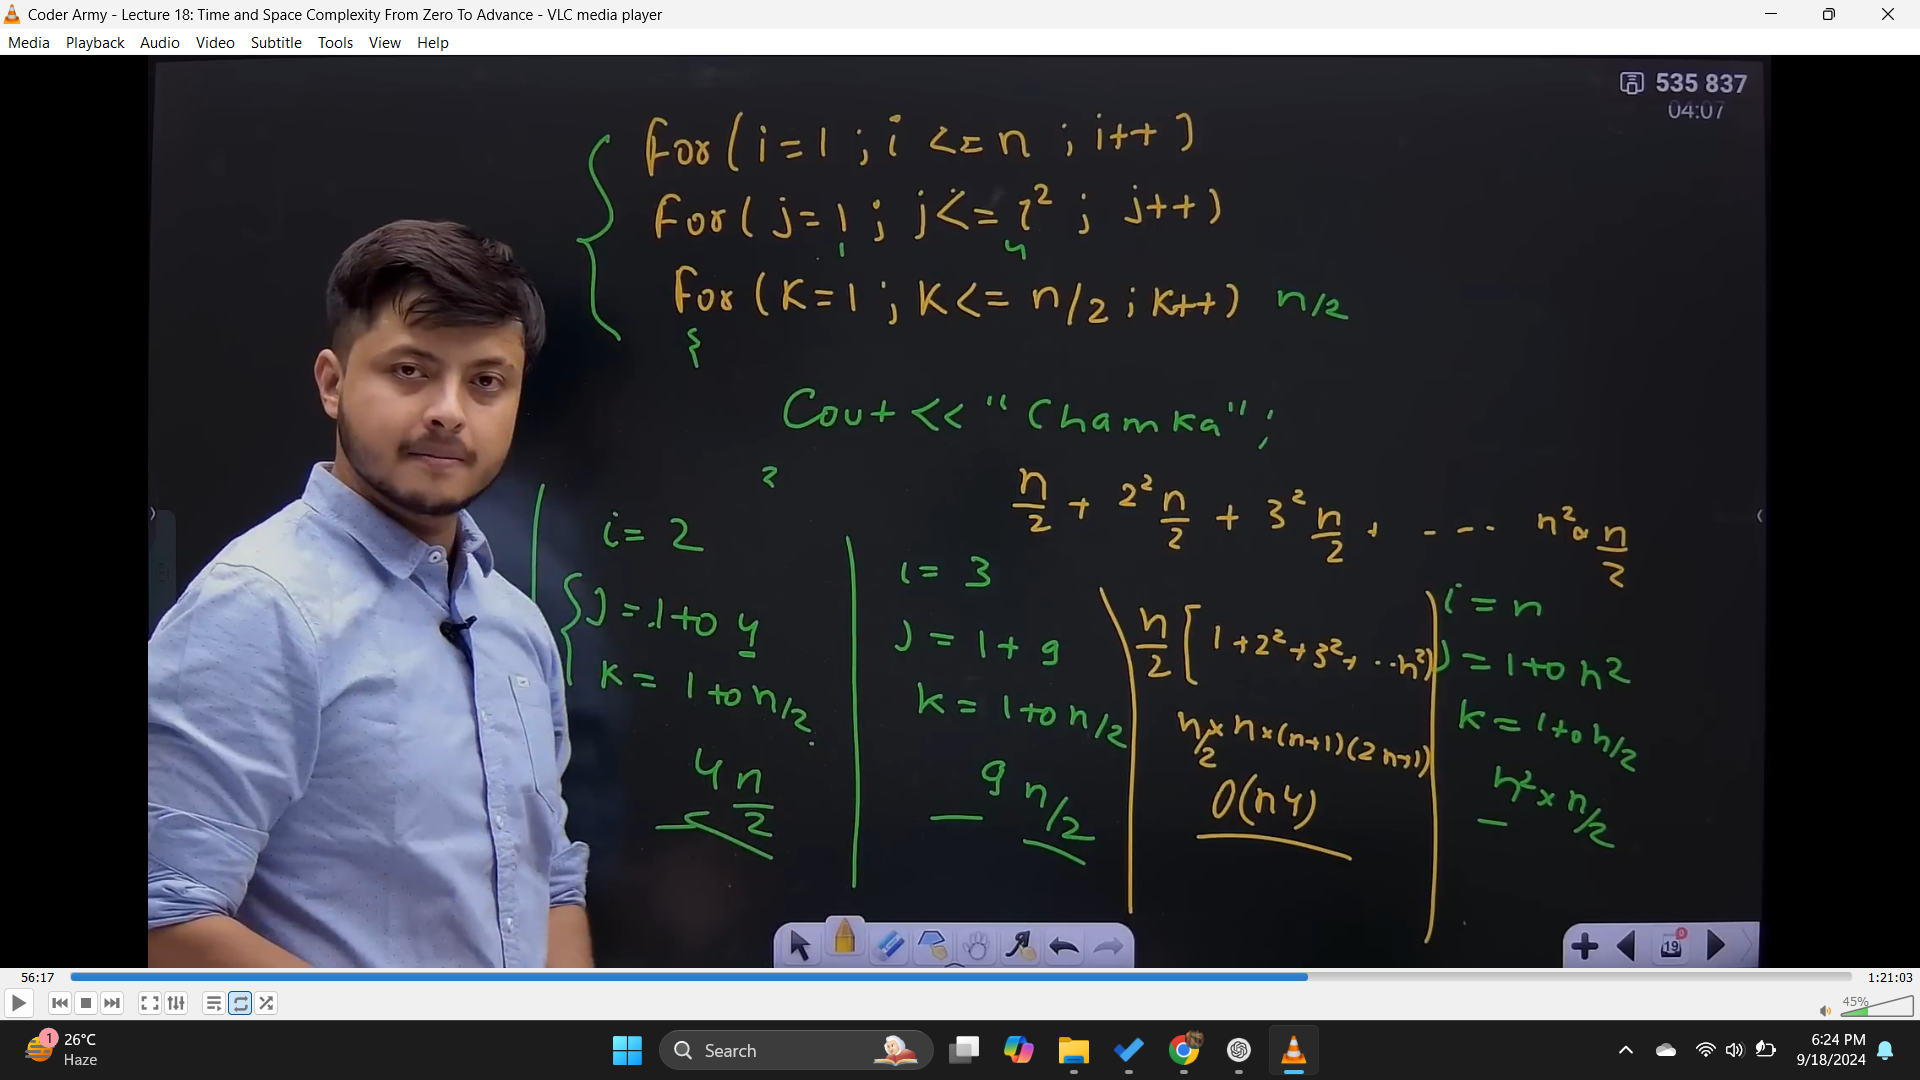 Coder Army - Lecture 18: Time and Space Complexity From Zero To Advance - VLC media player
Media Playback Audio Video Subtitle Tools View Help
535 837
04:07
for(i=1 ; i <= n ; i++)
for( j=1 ; j<= i² ; j++)
1 4
for (K=1 ; K<= n/2 ; k++) n/2
{
Cout << "Chamka";
n/2 + 2² n/2 + 3² n/2 + - - - n² * n/2
i= 2
J = 1 to 4
K = 1 to n/2
4 n/2
i= 3
J = 1 + 9
k = 1 to n/2
9 n/2
n/2 [ 1+2²+3²+ ..n²)
n/2 × n×(n+1)(2n+1)
O(n4)
i = n
J = 1 to n²
k = 1 to n/2
n² × n/2
19
0
56:17
1:21:03
45%
1
26°C
Haze
Search
6:24 PM
9/18/2024